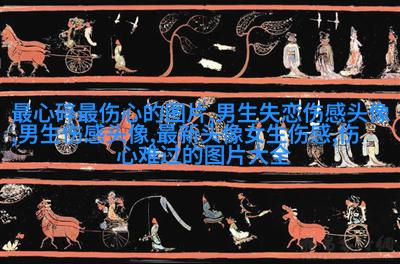 最心碎最伤心的图片,男生失恋伤感头像
,男生伤感头像,最新头像女生伤感,伤
心难过的图片大全